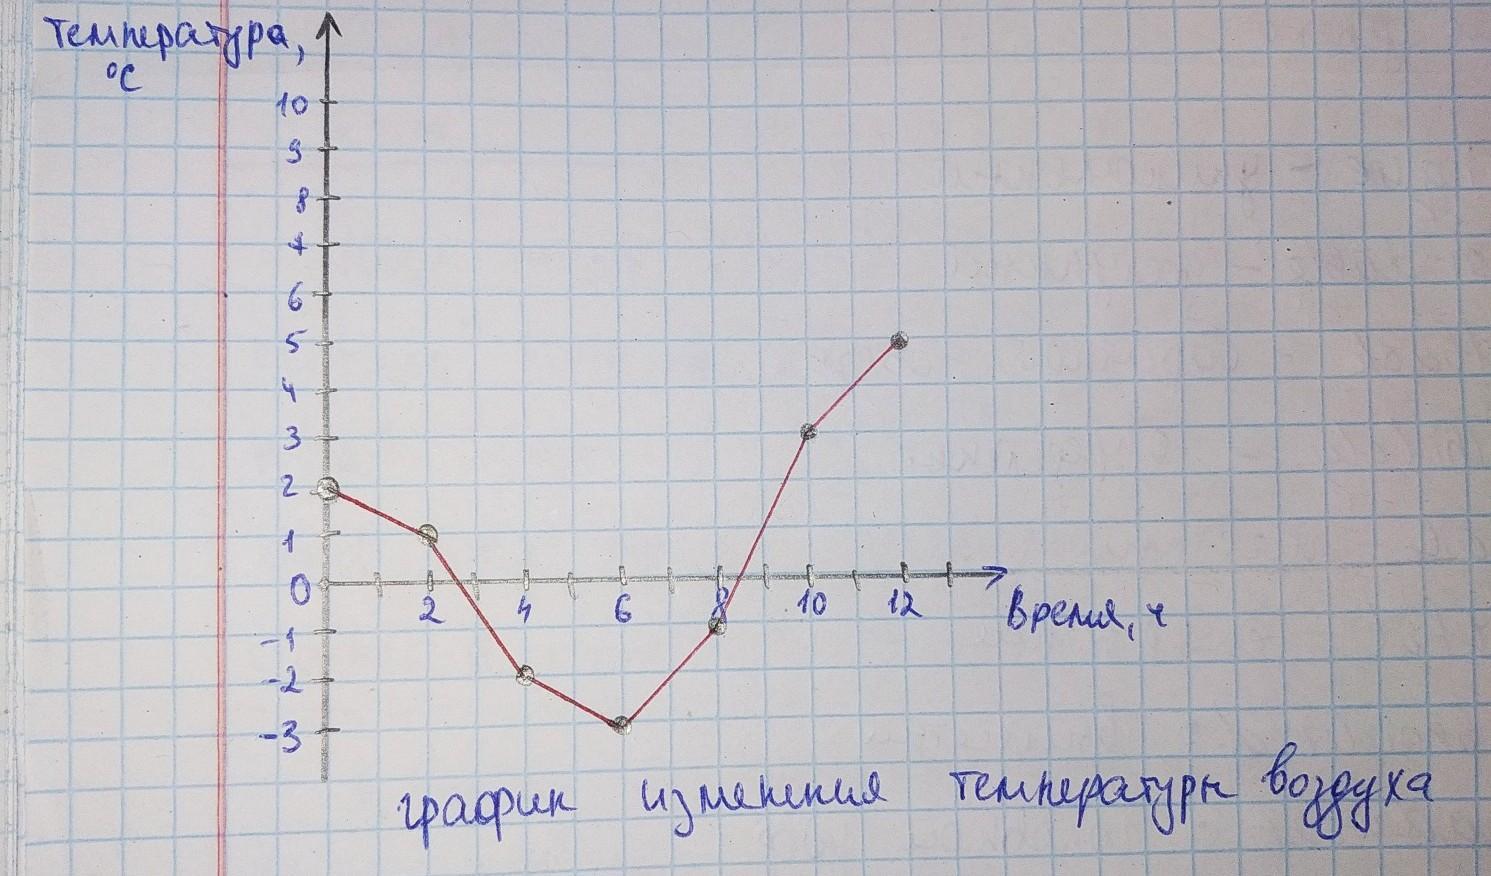 Температура,
°C
10
9
8
7
6
5
4
3
2
1
0
2 4 6 8 10 12
Время, ч
-1
-2
-3
график изменения температуры воздуха